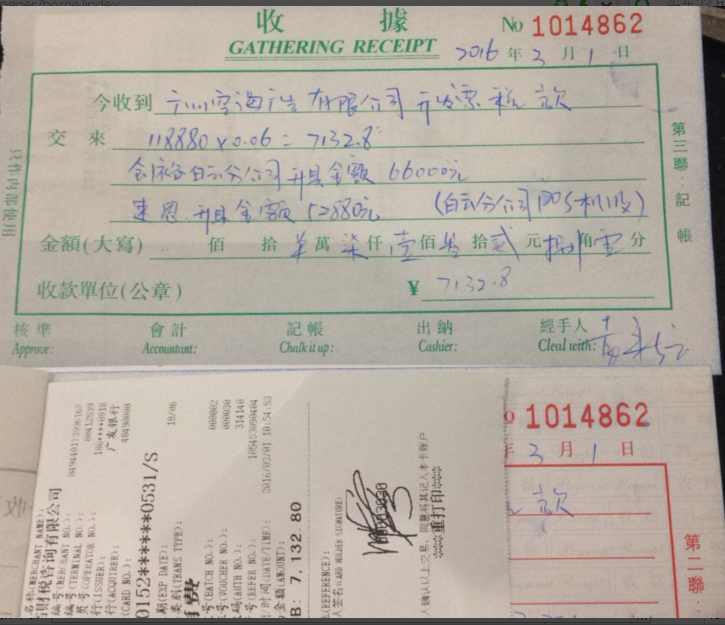 收 據
No 1014862
GATHERING RECEIPT
2016 年 3 月 1 日
今收到 有限公司 开发票 税 款
交 來 118880 x 0.06 = 7132.8
白云分公司 开具金额 66000元
开具金额 52880元 (白云分公司POS机收)
金額(大寫) 佰 拾 萬 柒 仟 壹 佰 叁 拾 贰 元 捌 角 零 分
收款單位(公章) ¥ 7132.8
核準 會計 記帳 出納 經手人
Approve: Accountant: Chalk it up: Cashier: Cleal with:
第三聯:記帳
只作内部使用
1014862
3 月 1 日
款
第二聯:
名称(MERCHANT NAME):
财税咨询有限公司
编号(MERCHANT NO.):
编号(TERMINAL NO.): 80412539
员号(OPERATOR NO.):
行(ISSUER): 广发银行
行(ACQUIRER): 48490000
(CARD NO.):
0152******0531/S
期(EXP DATE): 18/06
类别(TRANS TYPE):
消费
号(BATCH NO.): 000002
号(VOUCHER NO.): 000030
码(AUTH NO.): 314140
号(REFER NO.): 105453090404
时间(DATE/TIME): 2016/03/01 10:54:53
金额(AMOUNT):
B: 7,132.80
(REFERENCE):
人签名(CARD HOLDER SIGNATURE)
人确认以上交易,同意将其记入本卡账户
***重打印***